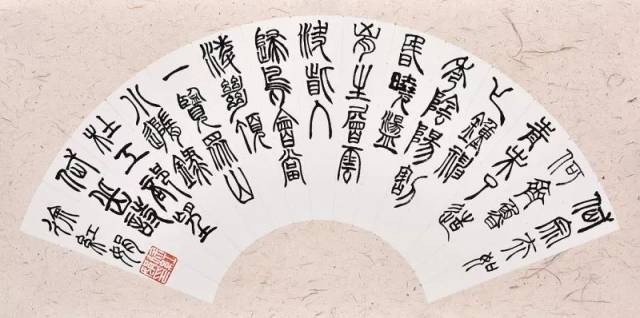 岱宗夫如
何齊魯
青未了造
化鍾神
秀陰陽割
昏曉盪
胸生層雲
決眥入
歸鳥會當
凌絕頂
一覽眾山
小錄
杜工部望
岱岳詩
徐紅